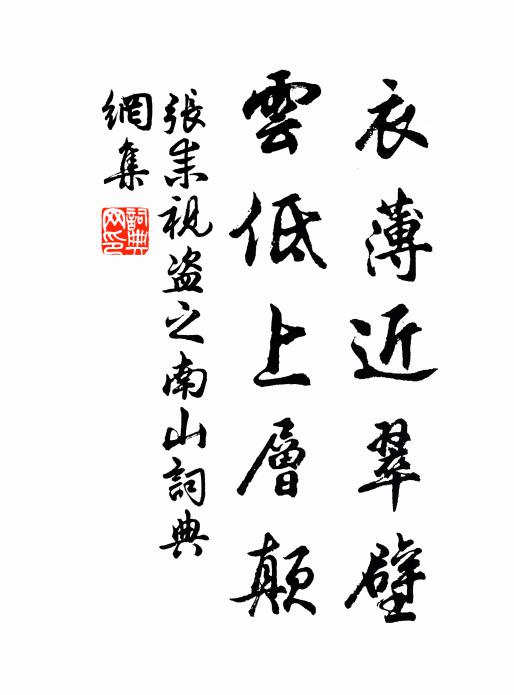 衣薄近翠壁
雲低上層顛
張耒視盜之南山詞典
網集
詞典網印